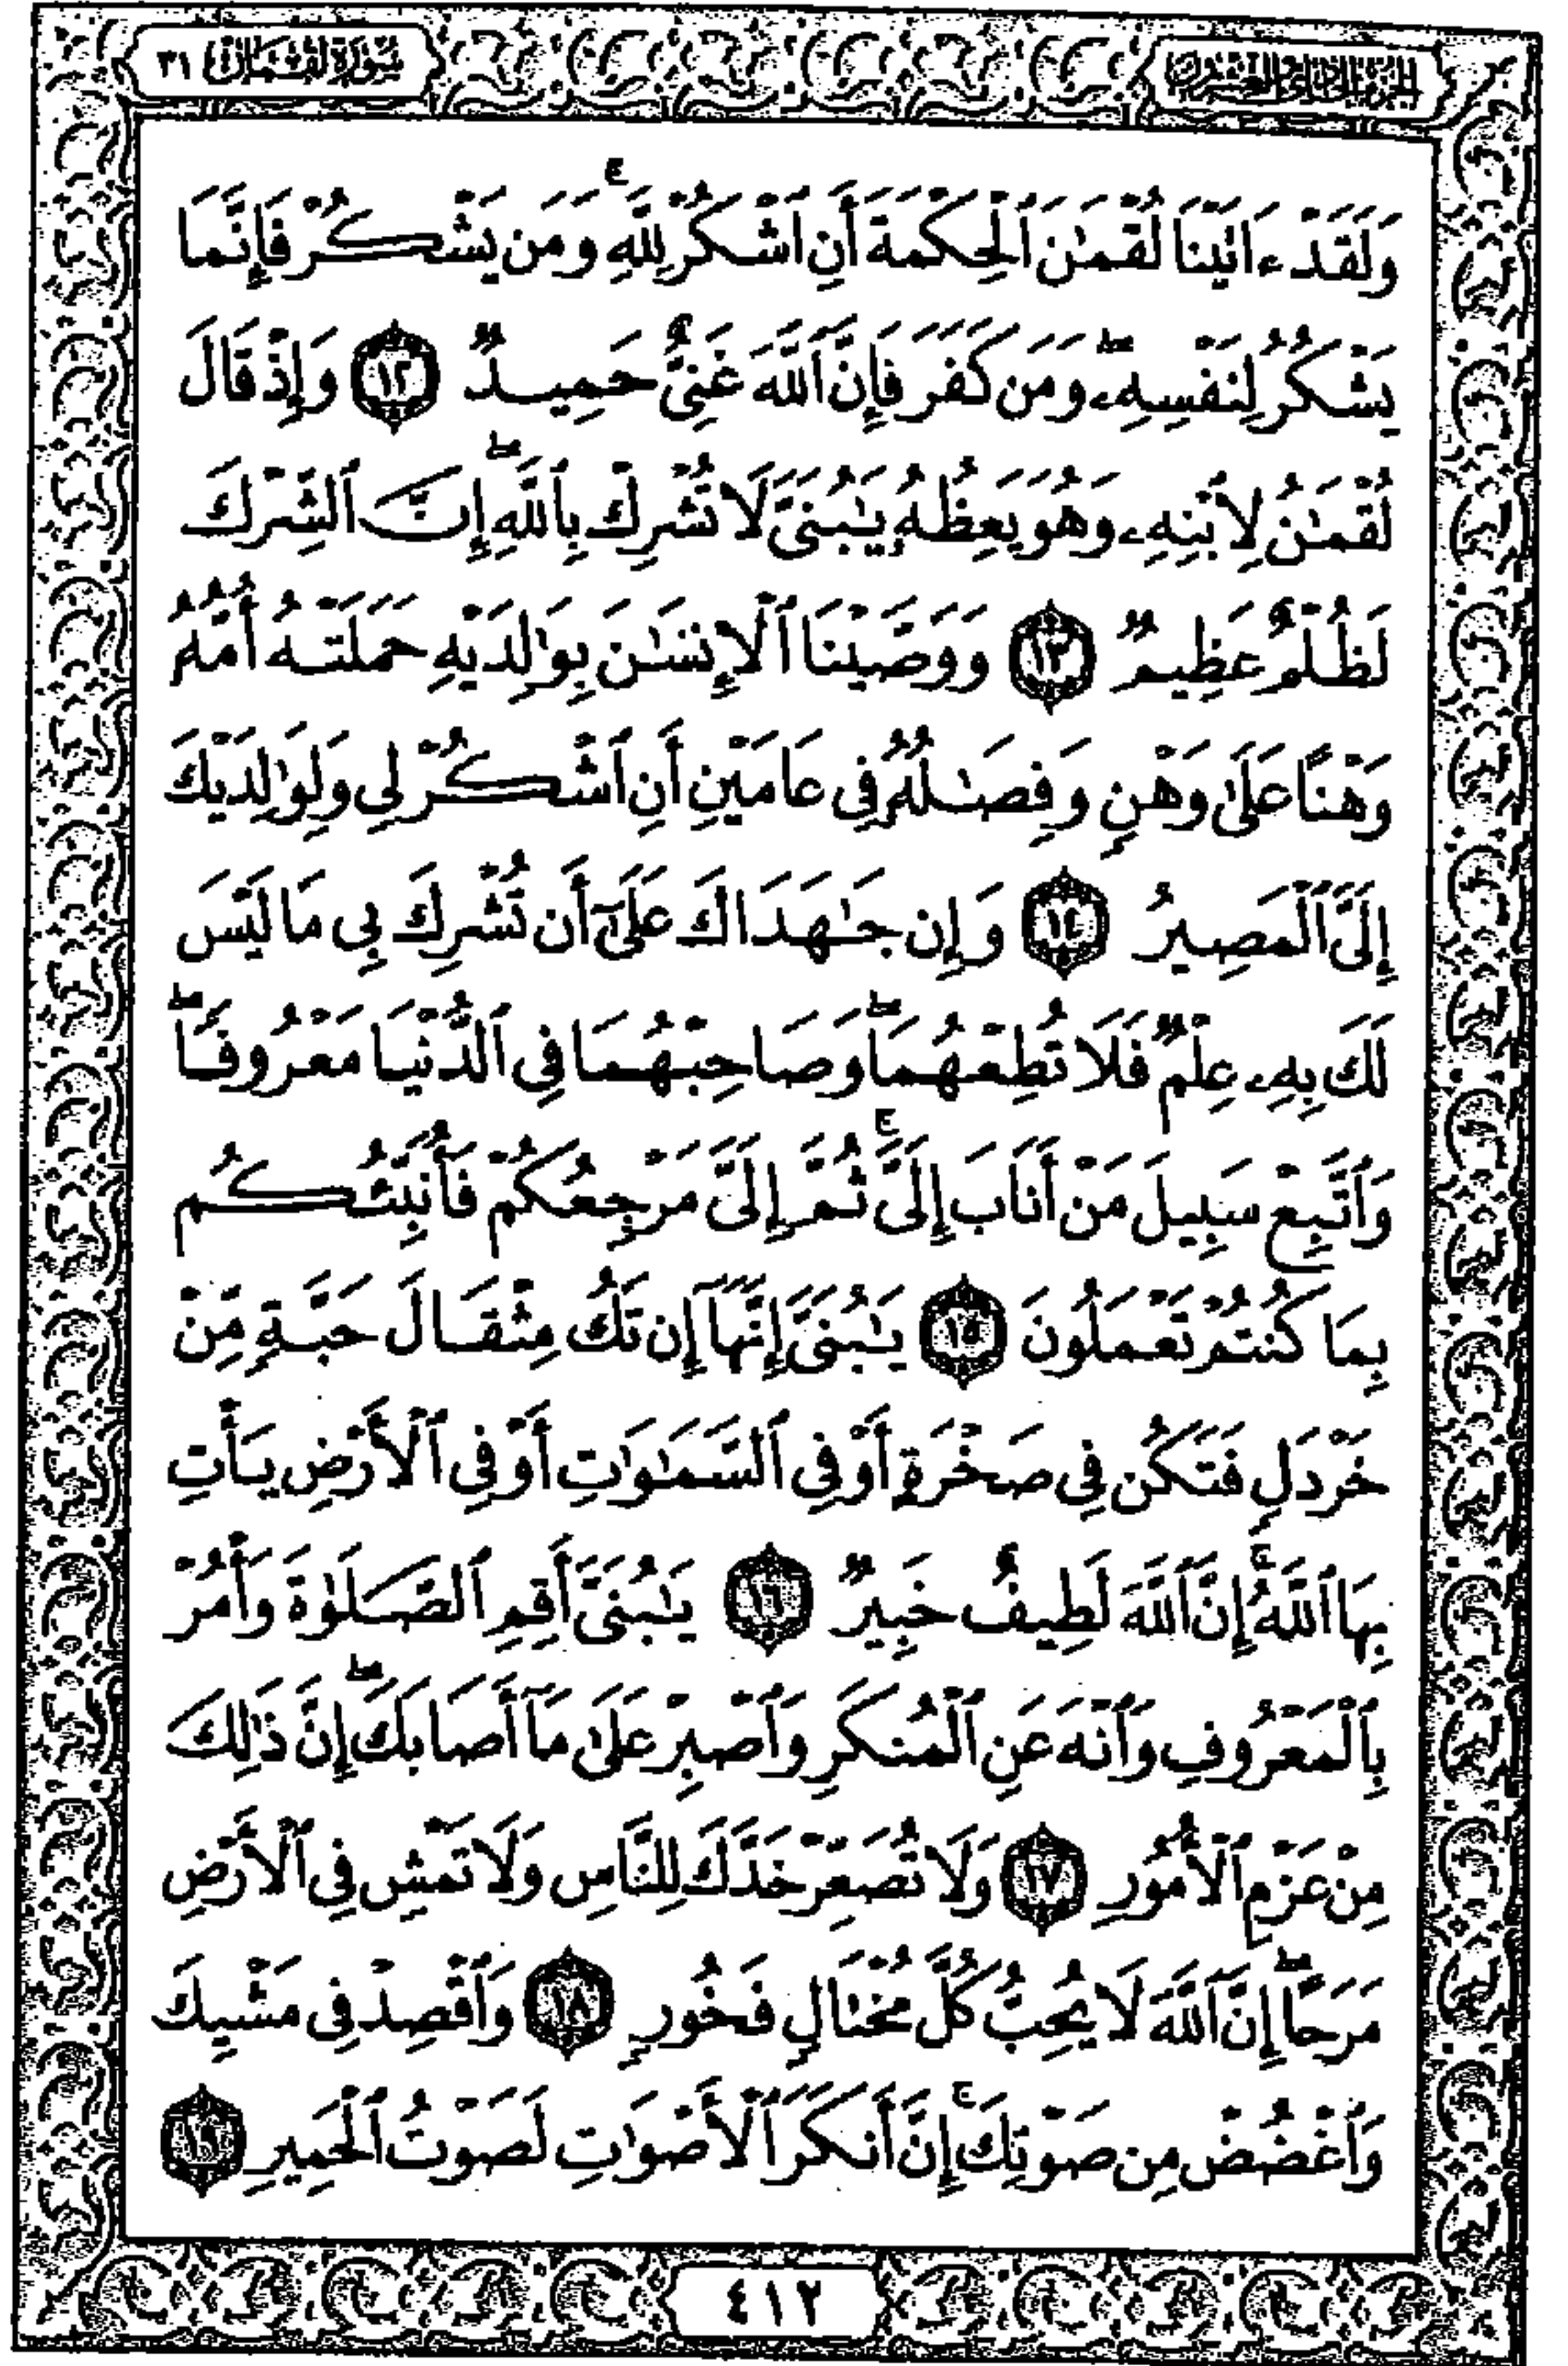 الجزء الحادي والعشرون
سُورَةُ لُقْمَان ٣١
وَلَقَدْ ءَاتَيْنَا لُقْمَـٰنَ ٱلْحِكْمَةَ أَنِ ٱشْكُرْ لِلَّهِۚ وَمَن يَشْكُرْ فَإِنَّمَا
يَشْكُرُ لِنَفْسِهِۦۖ وَمَن كَفَرَ فَإِنَّ ٱللَّهَ غَنِىٌّ حَمِيدٌ ١٢ وَإِذْ قَالَ
لُقْمَـٰنُ لِٱبْنِهِۦ وَهُوَ يَعِظُهُۥ يَـٰبُنَىَّ لَا تُشْرِكْ بِٱللَّهِۖ إِنَّ ٱلشِّرْكَ
لَظُلْمٌ عَظِيمٌ ١٣ وَوَصَّيْنَا ٱلْإِنسَـٰنَ بِوَٰلِدَيْهِ حَمَلَتْهُ أُمُّهُۥ
وَهْنًا عَلَىٰ وَهْنٍ وَفِصَـٰلُهُۥ فِى عَامَيْنِ أَنِ ٱشْكُرْ لِى وَلِوَٰلِدَيْكَ
إِلَىَّ ٱلْمَصِيرُ ١٤ وَإِن جَـٰهَدَاكَ عَلَىٰٓ أَن تُشْرِكَ بِى مَا لَيْسَ
لَكَ بِهِۦ عِلْمٌ فَلَا تُطِعْهُمَاۖ وَصَاحِبْهُمَا فِى ٱلدُّنْيَا مَعْرُوفًاۖ
وَٱتَّبِعْ سَبِيلَ مَنْ أَنَابَ إِلَىَّۚ ثُمَّ إِلَىَّ مَرْجِعُكُمْ فَأُنَبِّئُكُم
بِمَا كُنتُمْ تَعْمَلُونَ ١٥ يَـٰبُنَىَّ إِنَّهَآ إِن تَكُ مِثْقَالَ حَبَّةٍ مِّنْ
خَرْدَلٍ فَتَكُن فِى صَخْرَةٍ أَوْ فِى ٱلسَّمَـٰوَٰتِ أَوْ فِى ٱلْأَرْضِ يَأْتِ
بِهَا ٱللَّهُۚ إِنَّ ٱللَّهَ لَطِيفٌ خَبِيرٌ ١٦ يَـٰبُنَىَّ أَقِمِ ٱلصَّلَوٰةَ وَأْمُرْ
بِٱلْمَعْرُوفِ وَٱنْهَ عَنِ ٱلْمُنكَرِ وَٱصْبِرْ عَلَىٰ مَآ أَصَابَكَۖ إِنَّ ذَٰلِكَ
مِنْ عَزْمِ ٱلْأُمُورِ ١٧ وَلَا تُصَعِّرْ خَدَّكَ لِلنَّاسِ وَلَا تَمْشِ فِى ٱلْأَرْضِ
مَرَحًاۖ إِنَّ ٱللَّهَ لَا يُحِبُّ كُلَّ مُخْتَالٍ فَخُورٍ ١٨ وَٱقْصِدْ فِى مَشْيِكَ
وَٱغْضُضْ مِن صَوْتِكَۚ إِنَّ أَنكَرَ ٱلْأَصْوَٰتِ لَصَوْتُ ٱلْحَمِيرِ ١٩
٤١٢